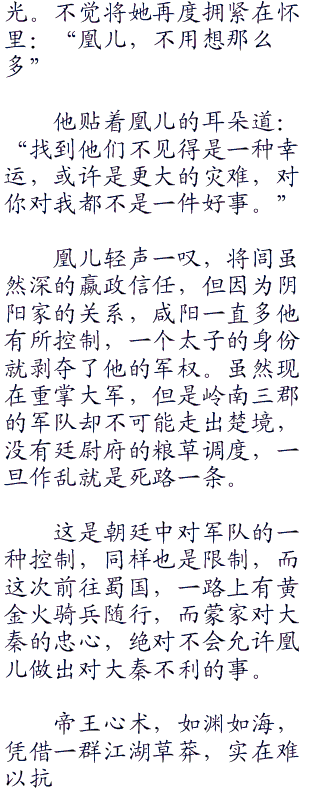 光。不觉将她再度拥紧在怀
里：“凰儿，不用想那么
多”
他贴着凰儿的耳朵道：
“找到他们不见得是一种幸
运，或许是更大的灾难，对
你对我都不是一件好事。”
凰儿轻声一叹，将闾虽
然深的嬴政信任，但因为阴
阳家的关系，咸阳一直多他
有所控制，一个太子的身份
就剥夺了他的军权。虽然现
在重掌大军，但是岭南三郡
的军队却不可能走出楚境，
没有廷尉府的粮草调度，一
旦作乱就是死路一条。
这是朝廷中对军队的一
种控制，同样也是限制，而
这次前往蜀国，一路上有黄
金火骑兵随行，而蒙家对大
秦的忠心，绝对不会允许凰
儿做出对大秦不利的事。
帝王心术，如渊如海，
凭借一群江湖草莽，实在难
以抗